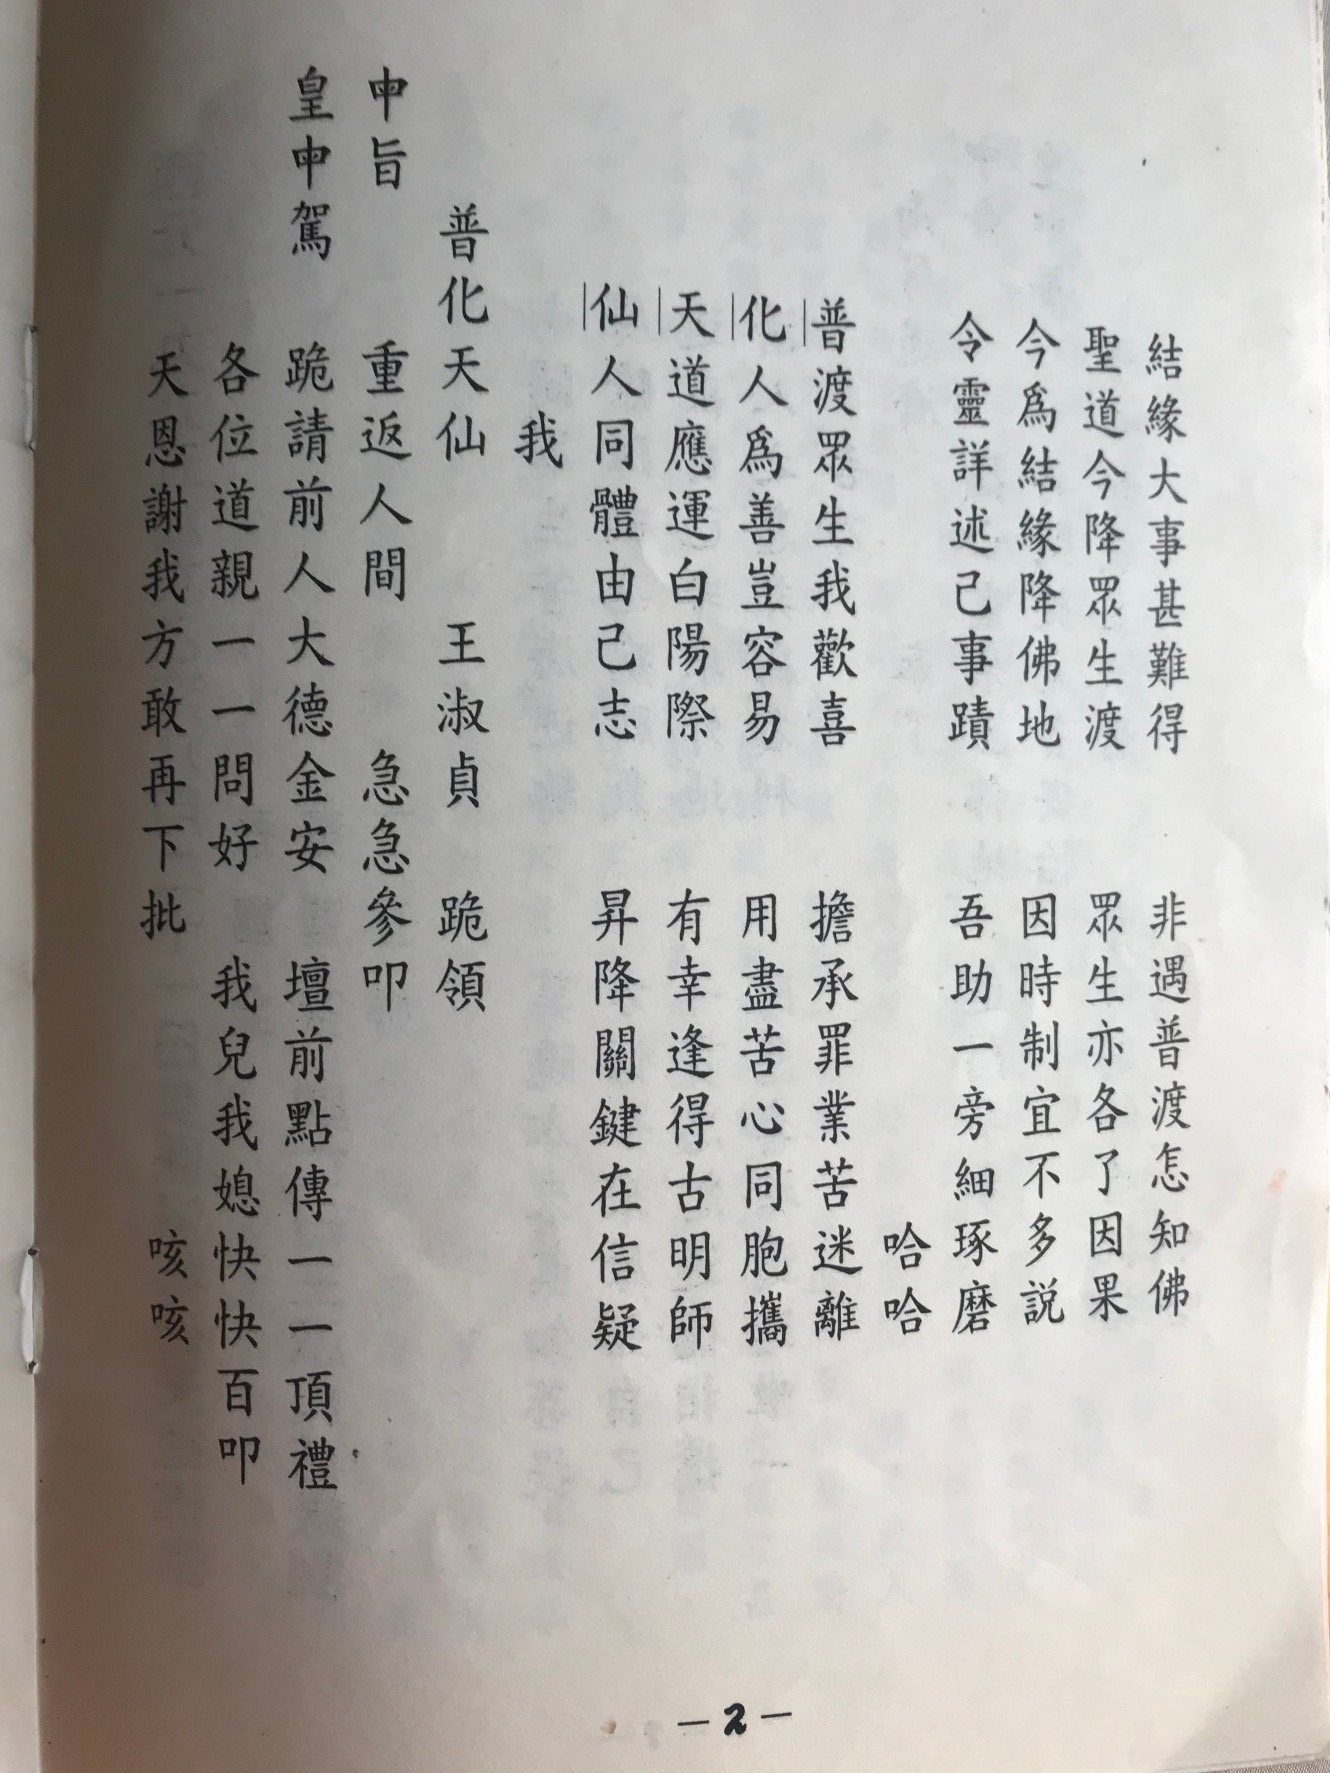 結緣大事甚難得　非遇普渡怎知佛
聖道今降眾生渡　眾生亦各了因果
今為結緣降佛地　因時制宜不多説
令靈詳述己事蹟　吾助一旁細琢磨
哈哈
普渡眾生我歡喜　擔承罪業苦迷離
化人為善豈容易　用盡苦心同胞攜
天道應運白陽際　有幸逢得古明師
仙人同體由己志　昇降關鍵在信疑
我
普化天仙　王淑貞　跪領
中旨　重返人間　急急參叩
皇中駕　跪請前人大德金安　壇前點傳一一頂禮
各位道親一一問好　我兒我媳快快百叩
天恩謝我方敢再下批　咳咳
—2—